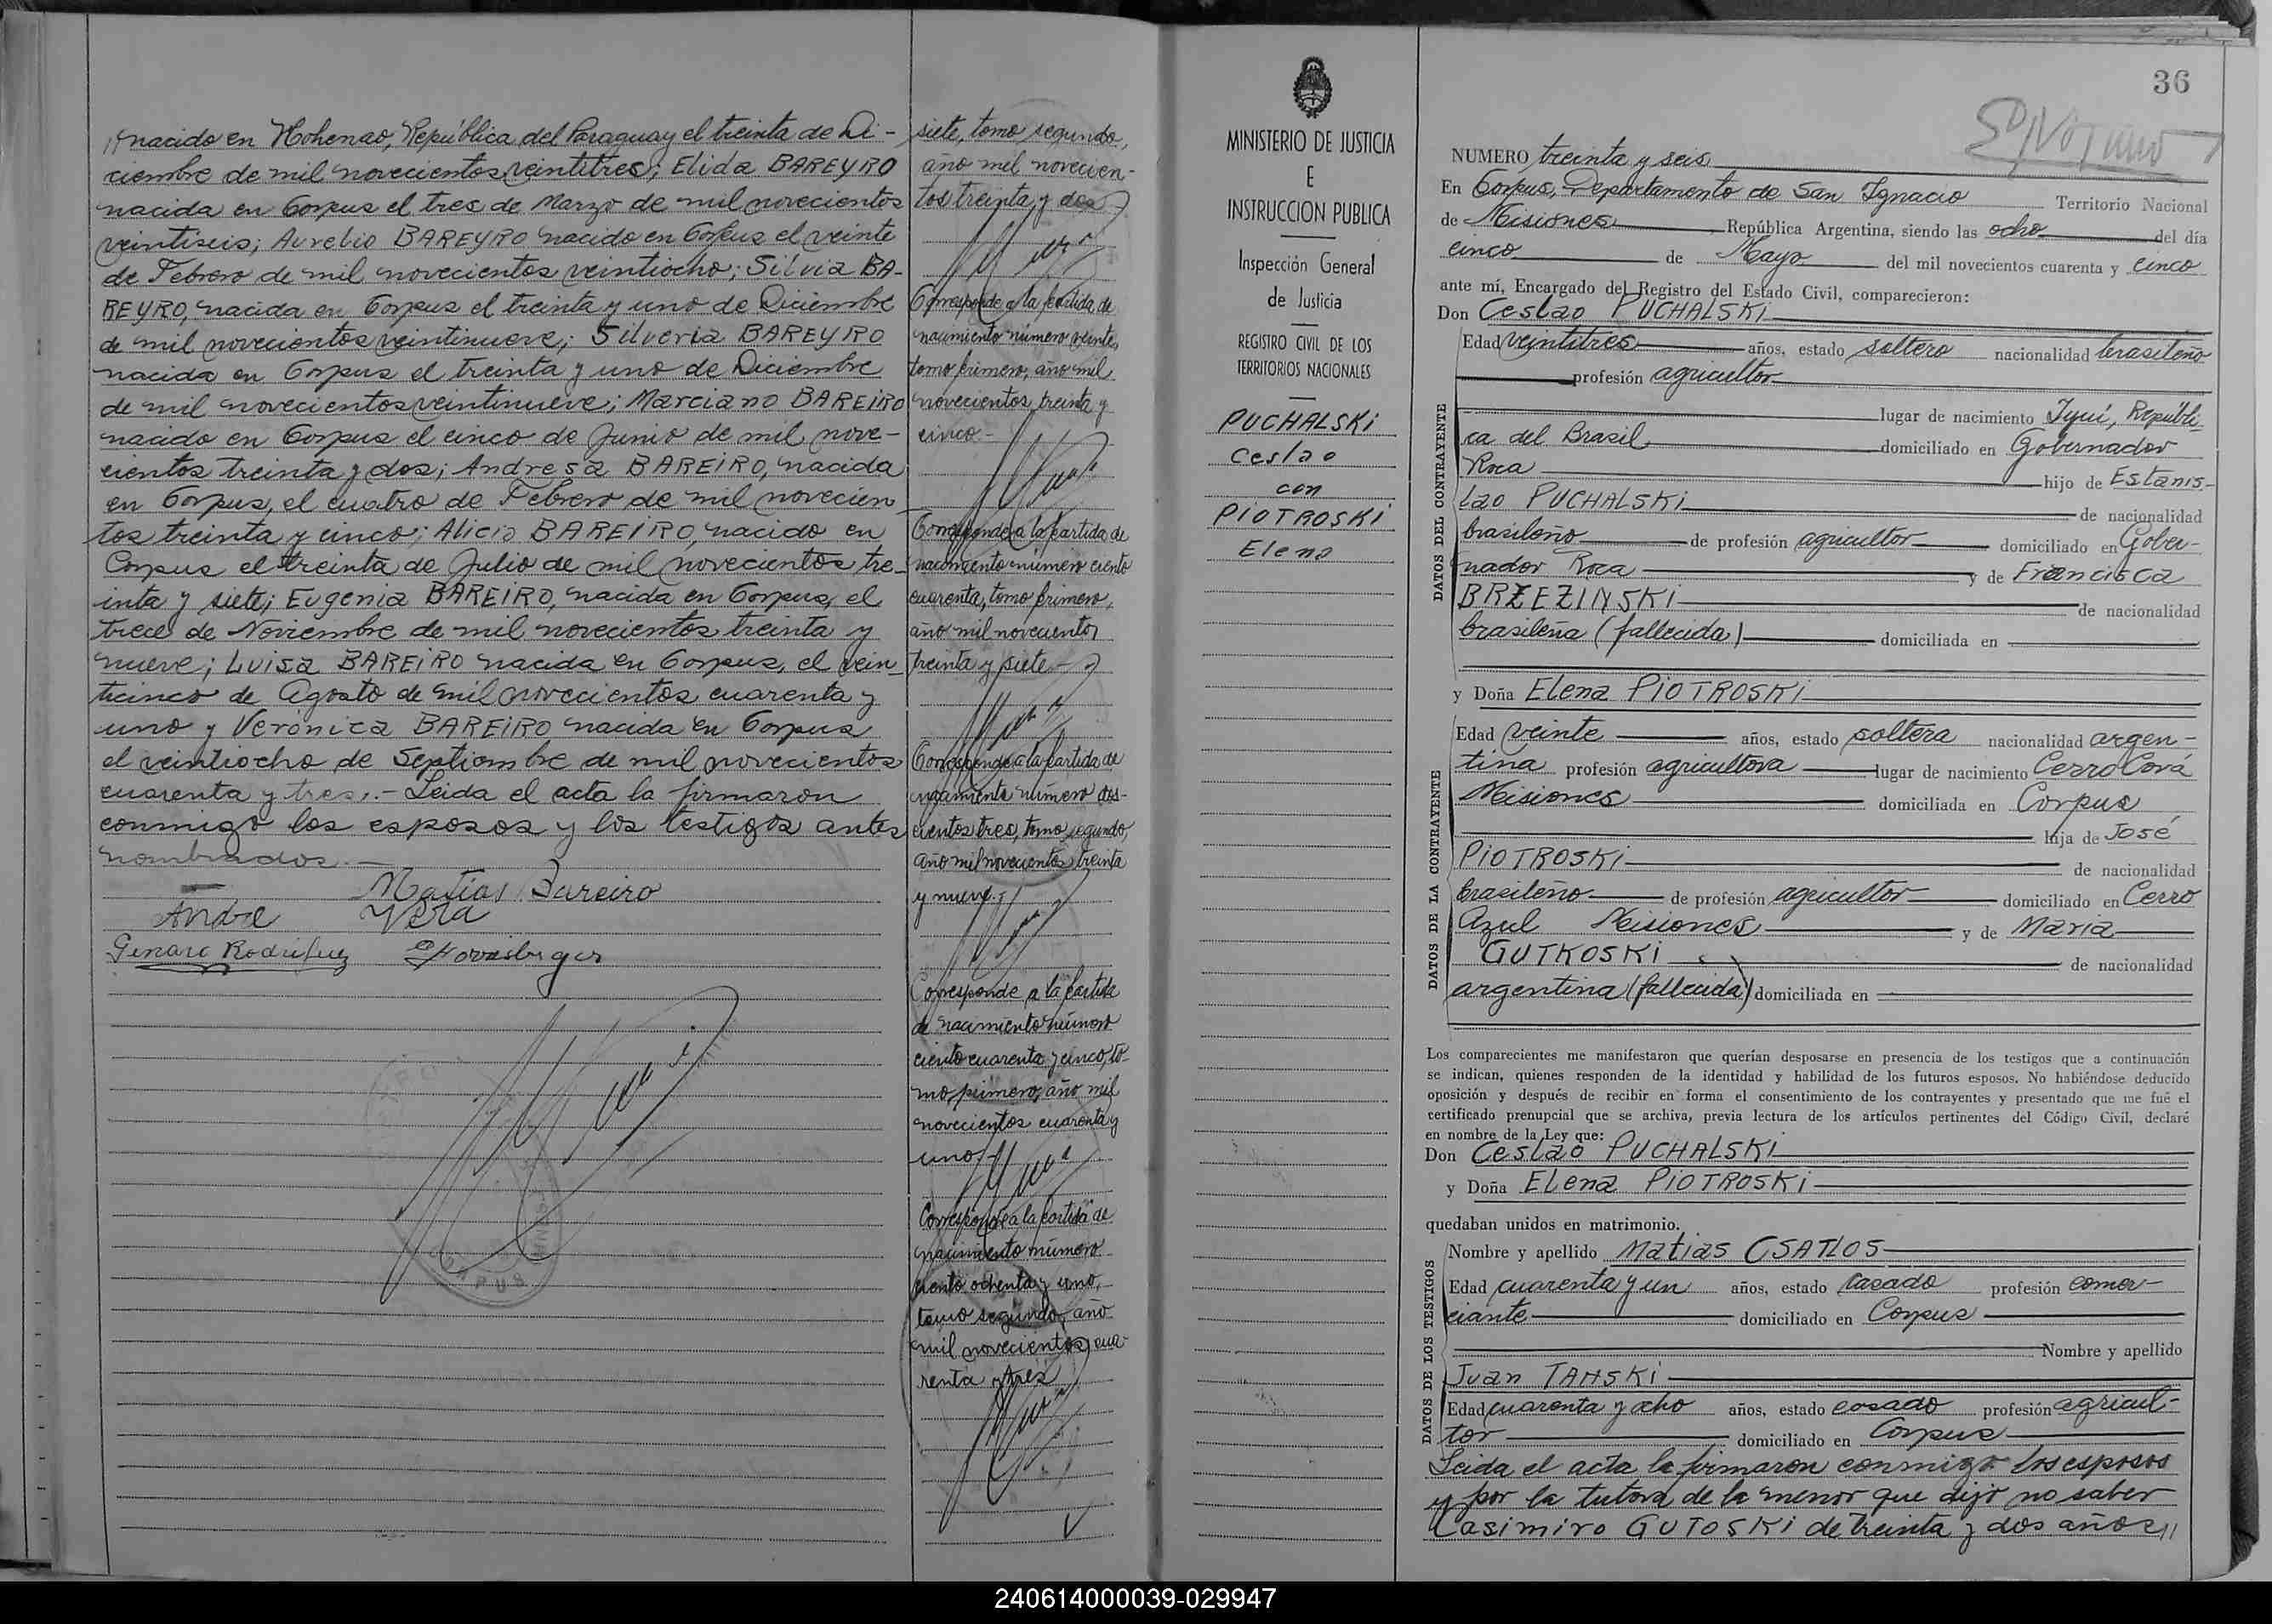 nacido en Hohenao, República del Paraguay el treinta de Di-
ciembre de mil novecientos veintitres; Elida BAREYRO
nacida en Corpus el tres de Marzo de mil novecientos
veintiseis; Aurelio BAREYRO nacido en Corpus el veinte
de Febrero de mil novecientos veintiocho; Silvia BA-
REYRO, nacida en Corpus el treinta y uno de Diciembre
de mil novecientos veintinueve; Silveria BAREYRO
nacida en Corpus el treinta y uno de Diciembre
de mil novecientos veintinueve; Marciano BAREIRO
nacido en Corpus el cinco de Junio de mil nove-
cientos treinta y dos; Andresa BAREIRO, nacida
en Corpus, el cuatro de Febrero de mil novecien
tos treinta y cinco; Alicio BAREIRO, nacido en
Corpus el treinta de Julio de mil novecientos tre-
inta y siete; Eugenia BAREIRO, nacida en Corpus, el
trece de Noviembre de mil novecientos treinta y
nueve; Luisa BAREIRO nacida en Corpus, el vein-
ticinco de Agosto de mil novecientos cuarenta y
uno y Verónica BAREIRO nacida en Corpus
el veintiocho de Septiembre de mil novecientos
cuarenta y tres.- Leida el acta la firmaron
conmigo los esposos y los testigos antes
nombrados.-
Matias Bareiro
Andre Vera
Genaro Rodriguez
siete, tomo segundo,
año mil novecien-
tos treinta y dos
Corresponde a la partida de
nacimiento número veinte,
tomo primero, año mil
novecientos treinta y
cinco-
Corresponde a la partida de
nacimiento número ciento
cuarenta, tomo primero,
año mil novecientos
treinta y siete-
Corresponde a la partida de
nacimiento número dos-
cientos tres, tomo segundo,
año mil novecientos treinta
y nueve.-
Corresponde a la partida
de nacimiento número
ciento cuarenta y cinco, to-
mo primero, año mil
novecientos cuarenta y
uno
Corresponde a la partida de
nacimiento número
ciento ochenta y uno,
tomo segundo, año
mil novecientos cua-
renta y tres
MINISTERIO DE JUSTICIA
E
INSTRUCCION PUBLICA
Inspección General
de Justicia
REGISTRO CIVIL DE LOS
TERRITORIOS NACIONALES
PUCHALSKi
Ceslao
con
PiOTROSKi
Elena
36
NUMERO treinta y seis
En Corpus, Departamento de San Ignacio Territorio Nacional
de Misiones República Argentina, siendo las ocho del día
cinco de Mayo del mil novecientos cuarenta y cinco
ante mí, Encargado del Registro del Estado Civil, comparecieron:
Don Ceslao PUCHALSKi
DATOS DEL CONTRAYENTE
Edad veintitres años, estado soltero nacionalidad brasileño
profesión agricultor
lugar de nacimiento Iyuí, Repúbli-
ca del Brasil domiciliado en Gobernador
Roca hijo de Estanis-
lao PUCHALSKi de nacionalidad
brasileño de profesión agricultor domiciliado en Gober-
nador Roca y de Francisca
BRZEZINSKi de nacionalidad
brasileña (fallecida) domiciliada en
y Doña Elena PiOTROSKi
DATOS DE LA CONTRAYENTE
Edad veinte años, estado soltera nacionalidad argen-
tina profesión agricultora lugar de nacimiento Cerro Corá
Misiones domiciliada en Corpus
hija de José
PiOTROSKi de nacionalidad
brasileño de profesión agricultor domiciliado en Cerro
Azul Misiones y de Maria
GUTKOSKi de nacionalidad
argentina (fallecida) domiciliada en
Los comparecientes me manifestaron que querían desposarse en presencia de los testigos que a continuación
se indican, quienes responden de la identidad y habilidad de los futuros esposos. No habiéndose deducido
oposición y después de recibir en forma el consentimiento de los contrayentes y presentado que me fué el
certificado prenupcial que se archiva, previa lectura de los artículos pertinentes del Código Civil, declaré
en nombre de la Ley que:
Don Ceslao PUCHALSKi
y Doña Elena PiOTROSKi
quedaban unidos en matrimonio.
DATOS DE LOS TESTIGOS
Nombre y apellido Matias CSATLOS
Edad cuarenta y un años, estado casado profesión comer-
ciante domiciliado en Corpus
Nombre y apellido
Juan TANSKi
Edad cuarenta y ocho años, estado casado profesión agricul-
tor domiciliado en Corpus
Leida el acta la firmaron conmigo los esposos
y por la tutora de la menor que dijo no saber
Casimiro GUTOSKi de treinta y dos años
240614000039-029947